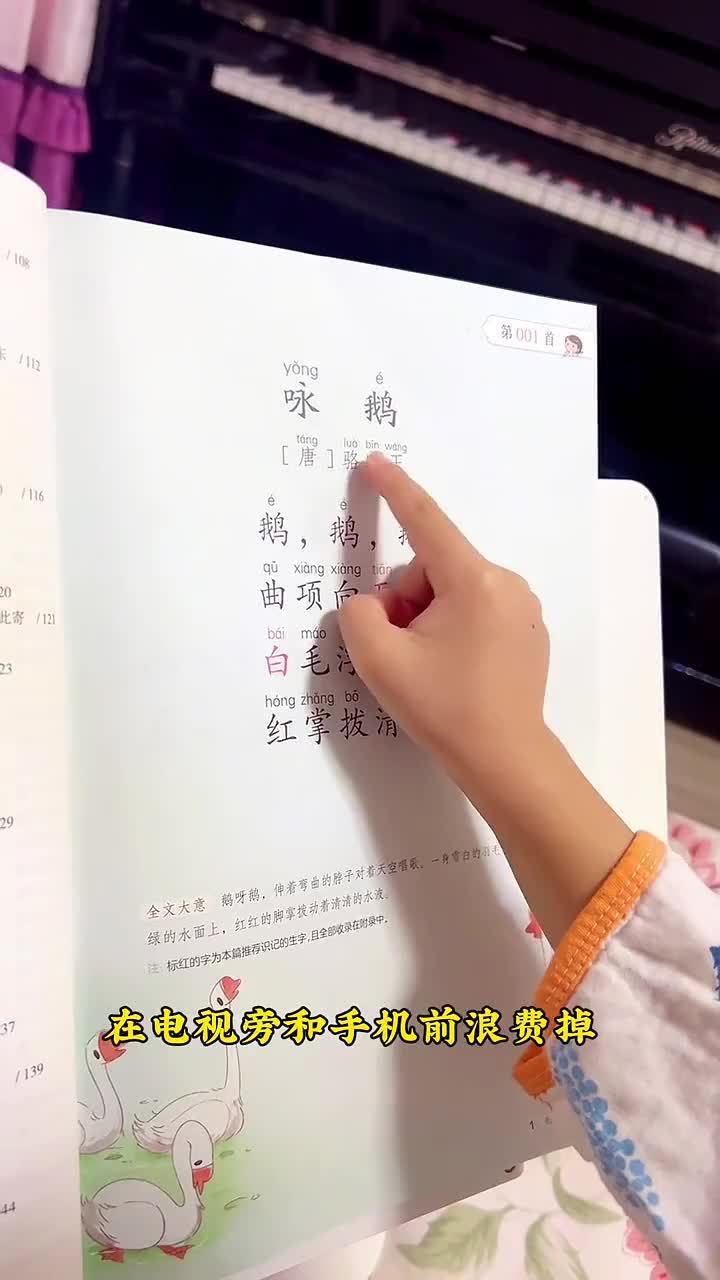 / 108
/ 112
/ 116
20
此寄 / 121
23
29
37
/ 139
44
第 001 首
yǒng é
咏 鹅
táng luò bīn wáng
[ 唐 ] 骆 王
é é
鹅，鹅，
qū xiàng xiàng tiān
曲项向
bái máo
白毛浮
hóng zhǎng bō
红掌拨清
全文大意 鹅呀鹅，伸着弯曲的脖子对着天空唱歌。一身雪白的羽毛
绿的水面上，红红的脚掌拨动着清清的水液。
注：标红的字为本篇推荐识记的生字，且全部收录在附录中。
在电视旁和手机前浪费掉
1